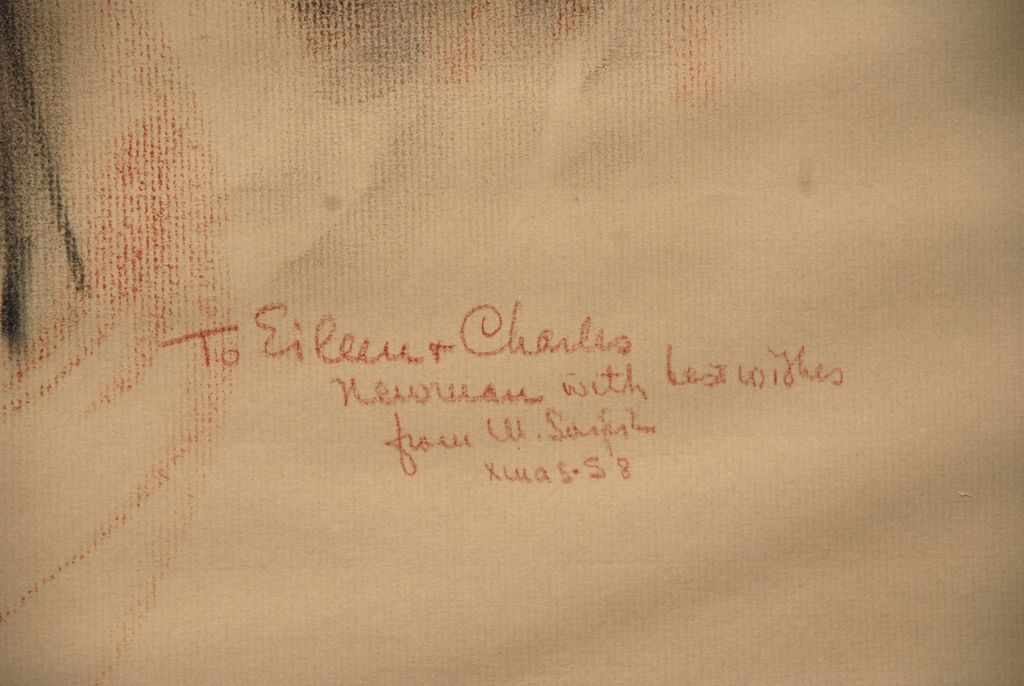 To Eileen + Charles
Newman with best wishes
from W.
Xmas - 58